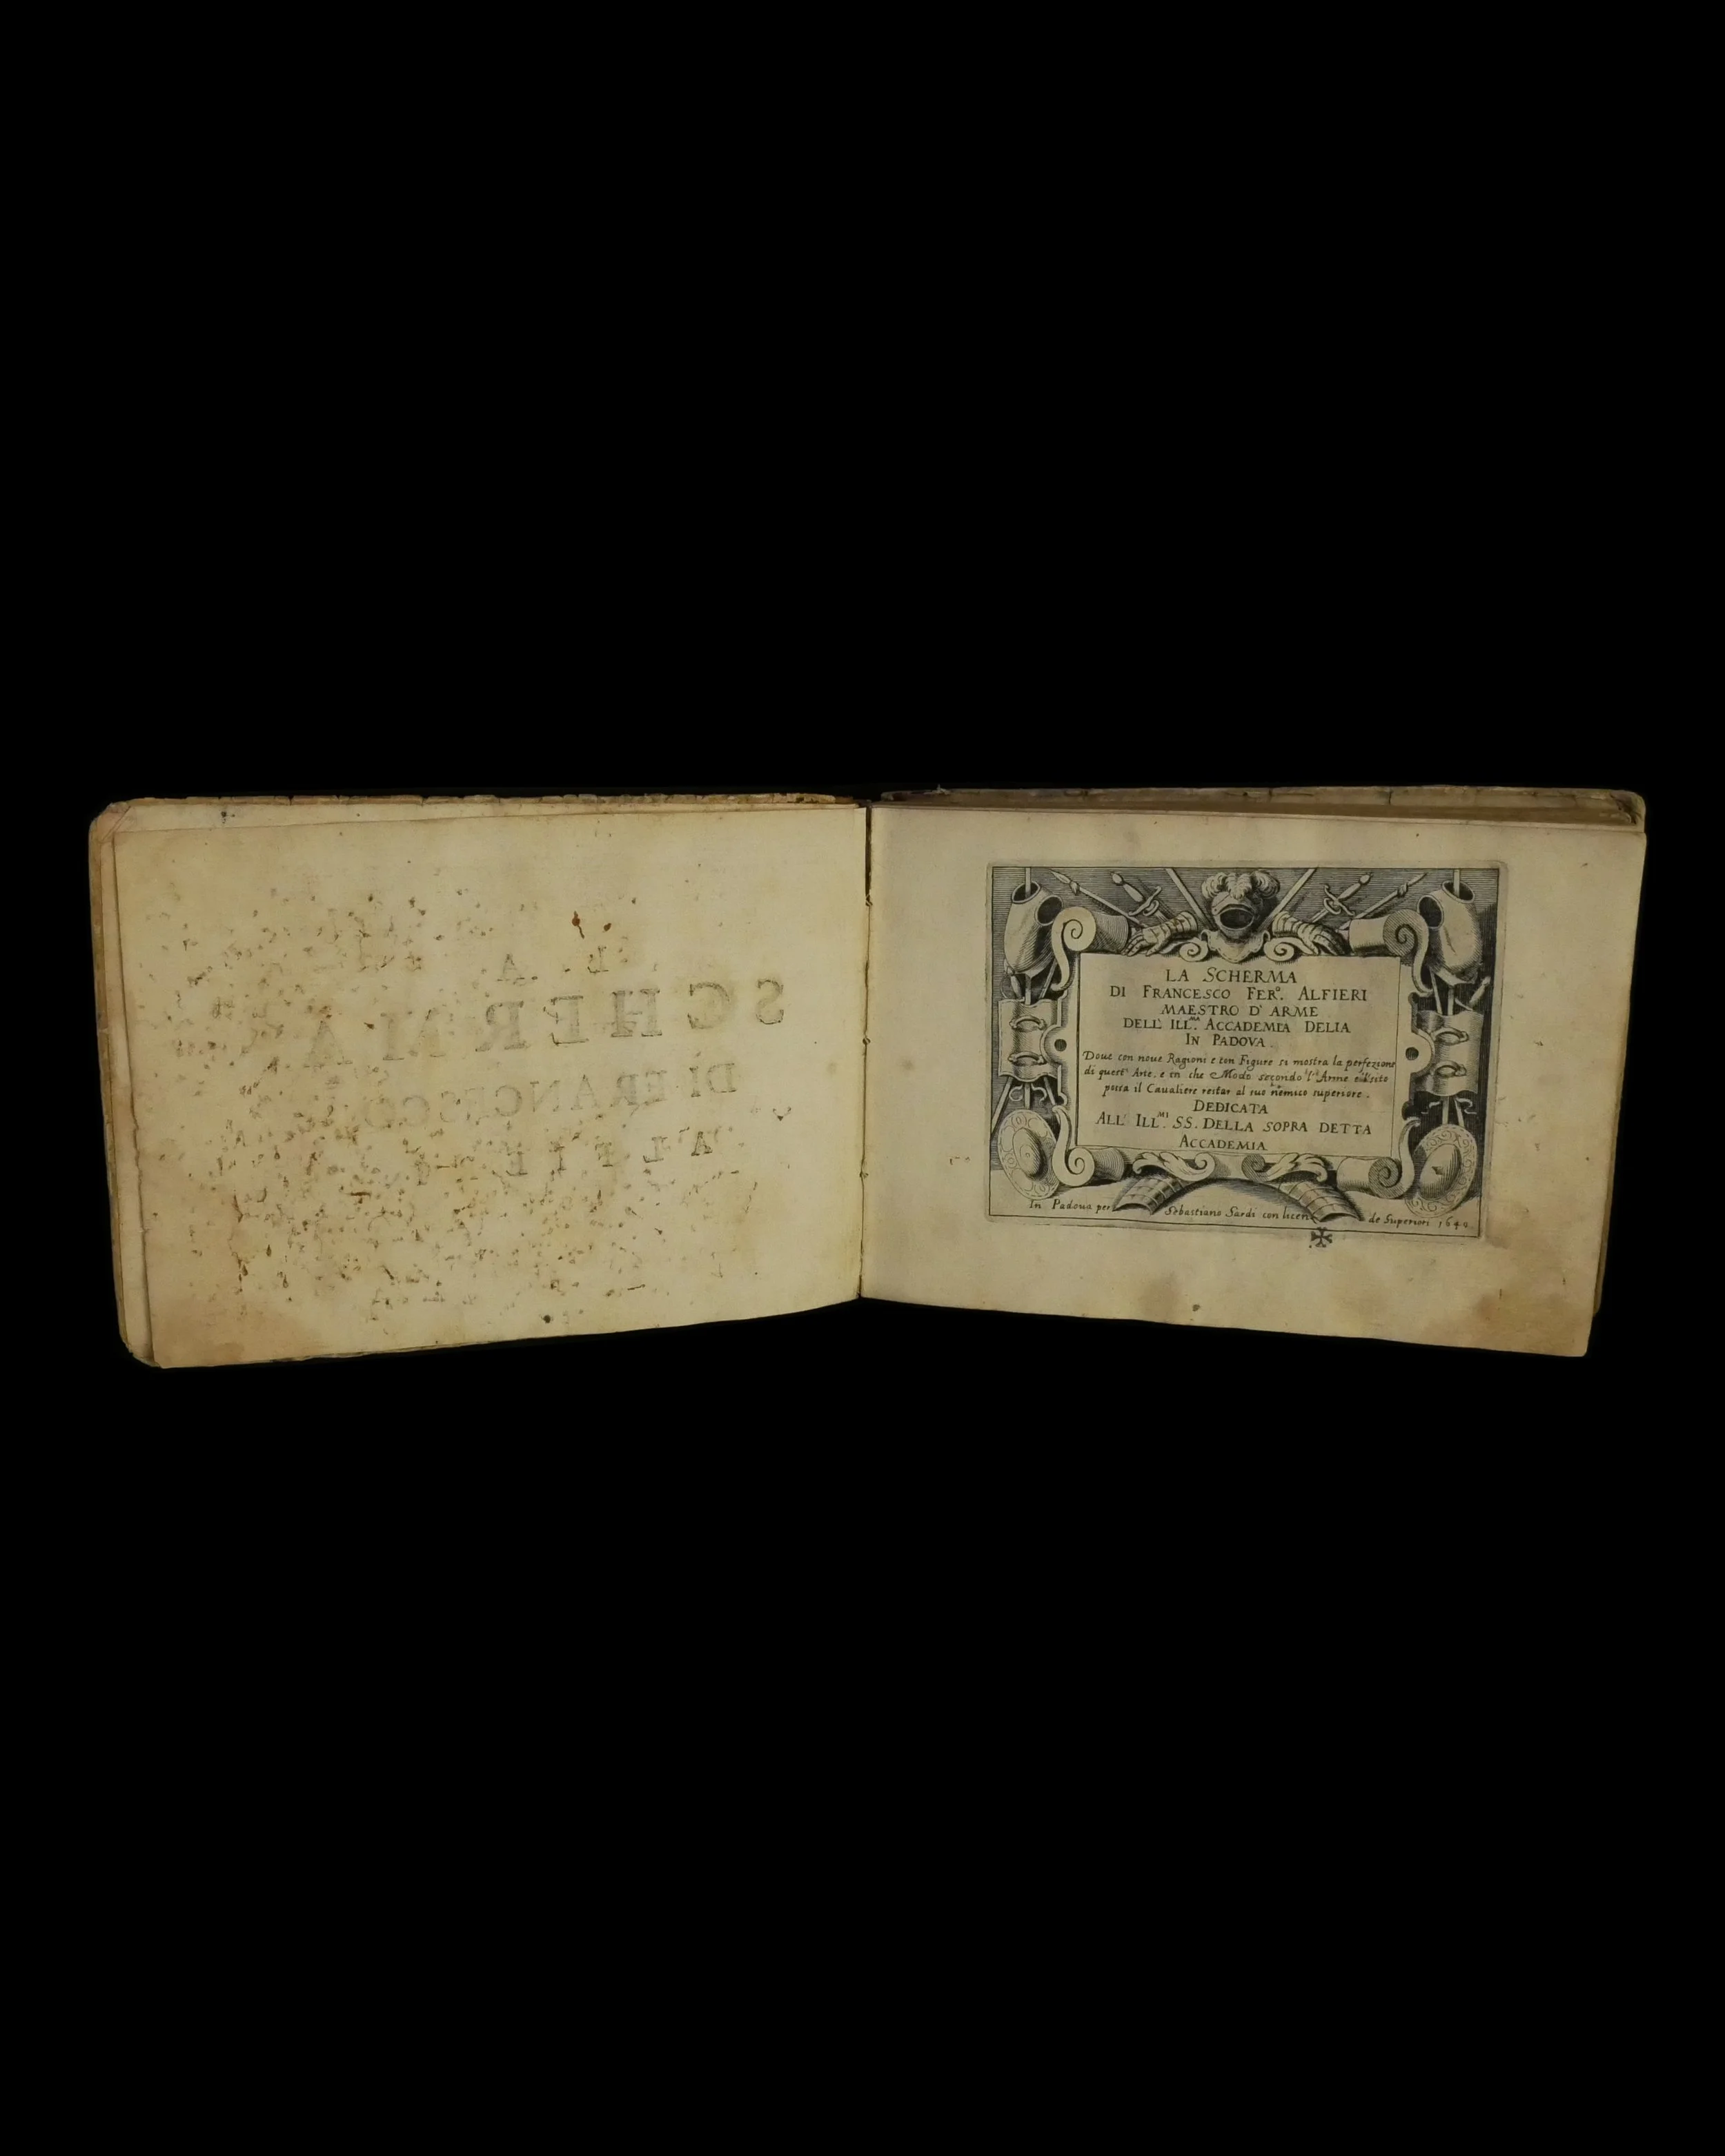 LA
SCHERMA
DI FRANCESCO
ALFIE
LA SCHERMA
DI FRANCESCO FER.º ALFIERI
MAESTRO D' ARME
DELL' ILL.MA ACCADEMIA DELIA
IN PADOVA.
Doue con noue Ragioni e con Figure si mostra la perfezione
di quest' Arte. e in che Modo secondo l' Arme e'l sito
possa il Caualiere restar al suo nemico superiore.
DEDICATA
ALL' ILL.MI SS. DELLA SOPRA DETTA
ACCADEMIA
In Padoua per Sebastiano Sardi con licen de Superiori 1640